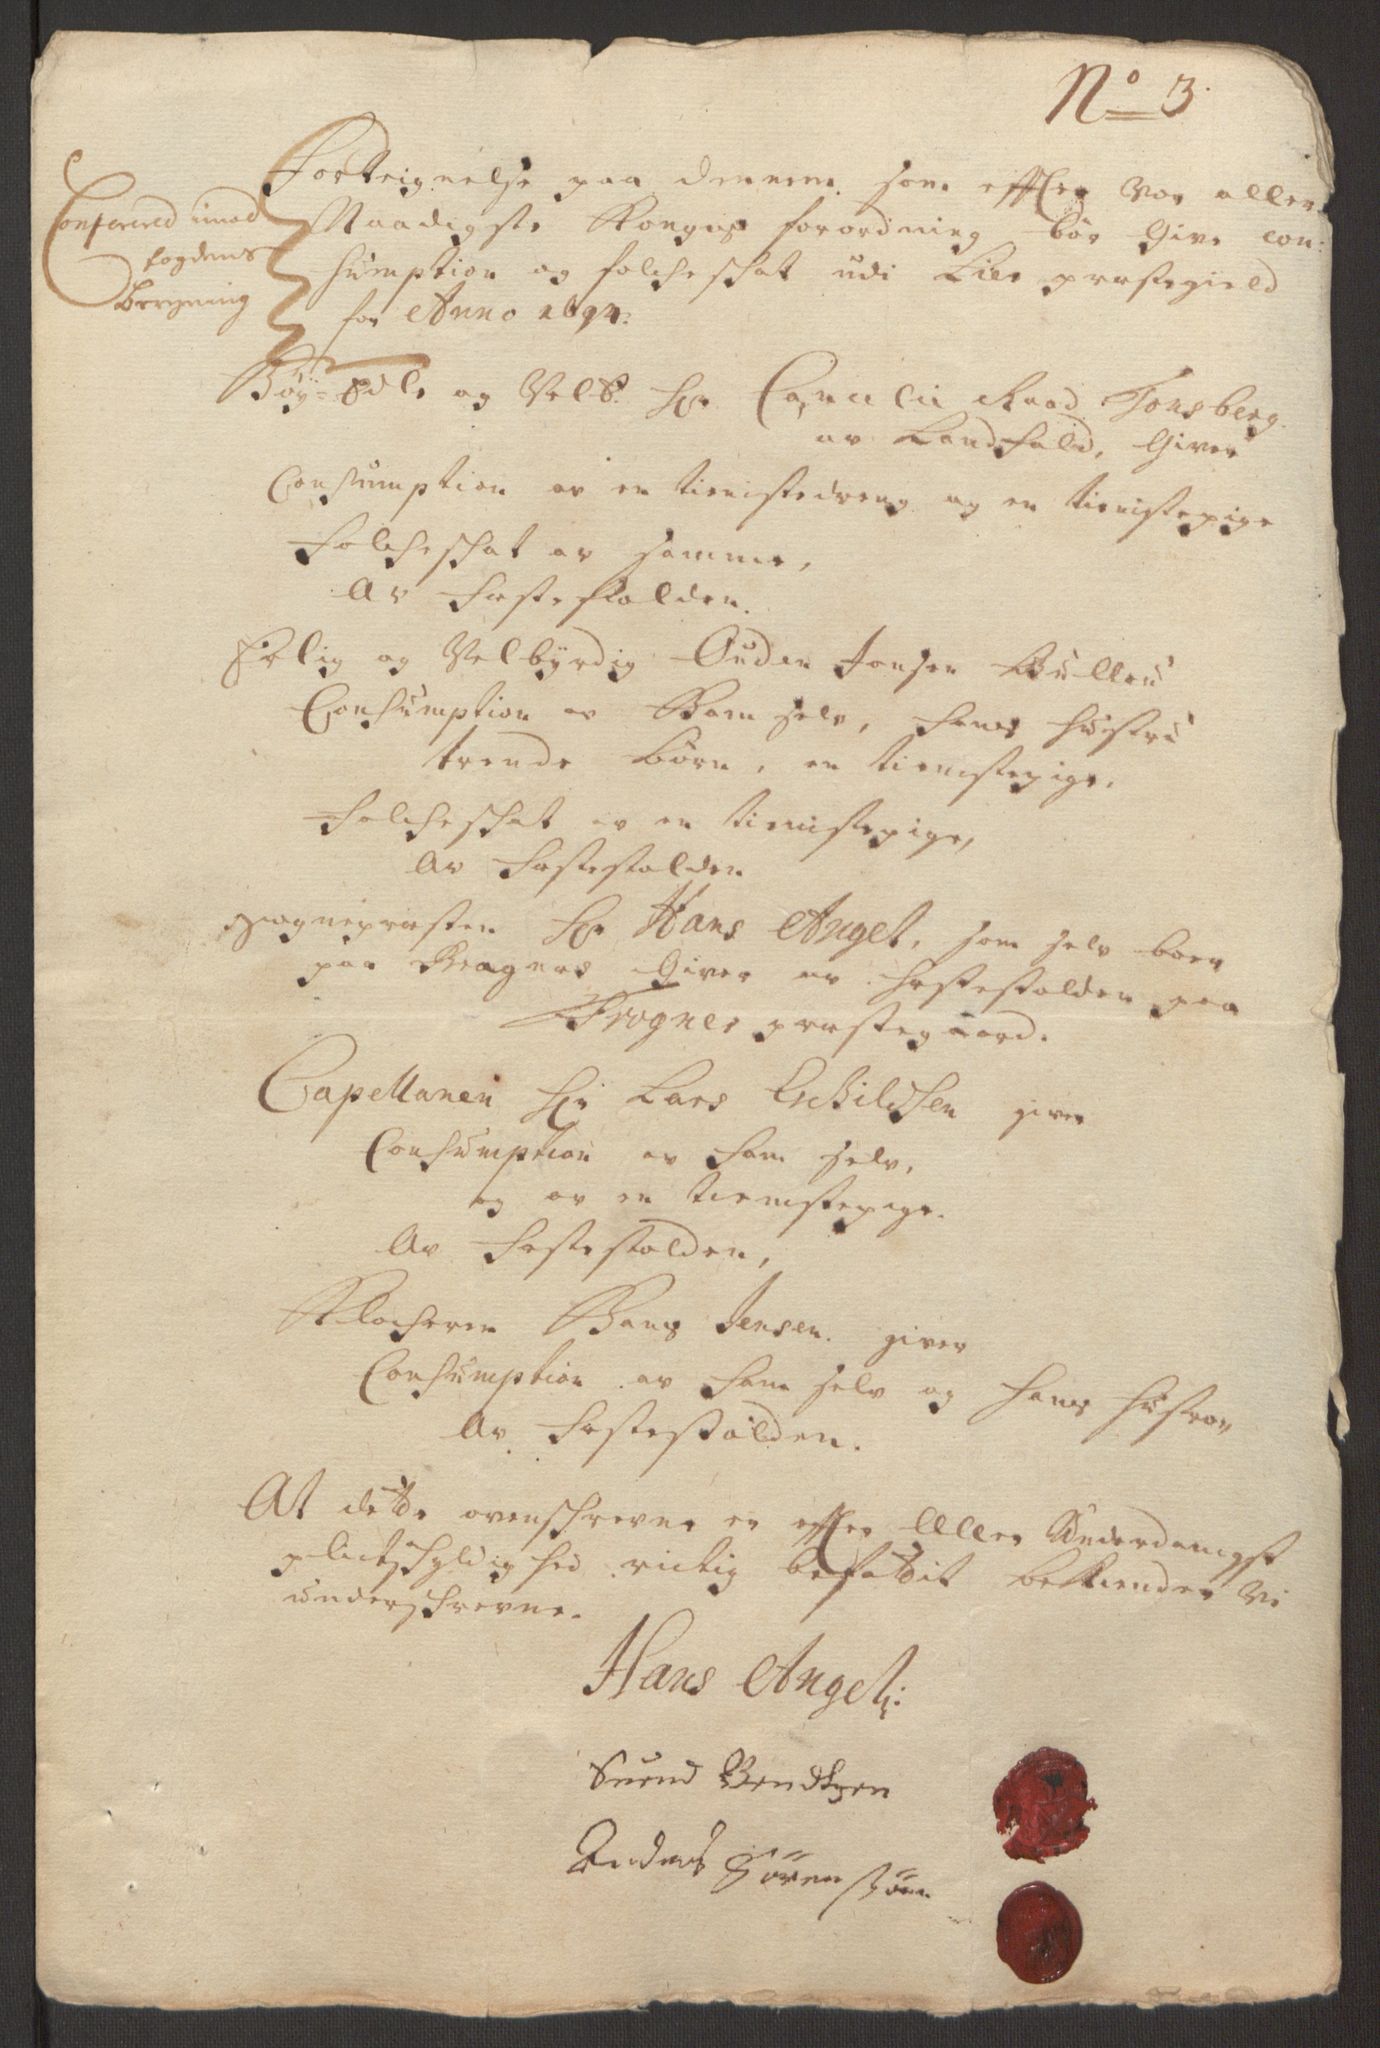 No 3.
Conferered imod
fogdens
Beregning
Forteignelse paa dennem som effter Vor aller-
Naadigste Konges forordning bør Give con:
sumption og folcheschat udi Lier præstegield
for Anno 1694:
Høy-Edle og Velb. Hr Cancelie Raad Tonsberg
av Landfald, Giver
Consumption av en tienistedreng og en tienistepige
Folcheschat av samme,
Av Heste stalden.
Erlig og Velbyrdig Ouden Jonsen Bulleu
Consumption av Ham selv, hans hustru
trende børn, en tienistepige,
Folcheschat av en tienistepige,
Av Hestestalden
Sognepræsten Hr Hans Angel, som selv boer
paa Bragnes Giver av Hestestalden paa
Frogner præstegaard.
Capellanen Hr Lars Eschildsen giver
Consumption av ham selv,
og av en tienistepige.
Av Hestestalden,
Klocheren Hans Jensen giver
Consumption av ham selv og hans hustrou
Av Hestestalden.
At dette ovenschrevne er effter Aller Underdanigst
plictschyldighed rictig befattit bekiender Vi
underschrevne.
Hans Angel:
Suend Bendtzen
Anders Sörenssön